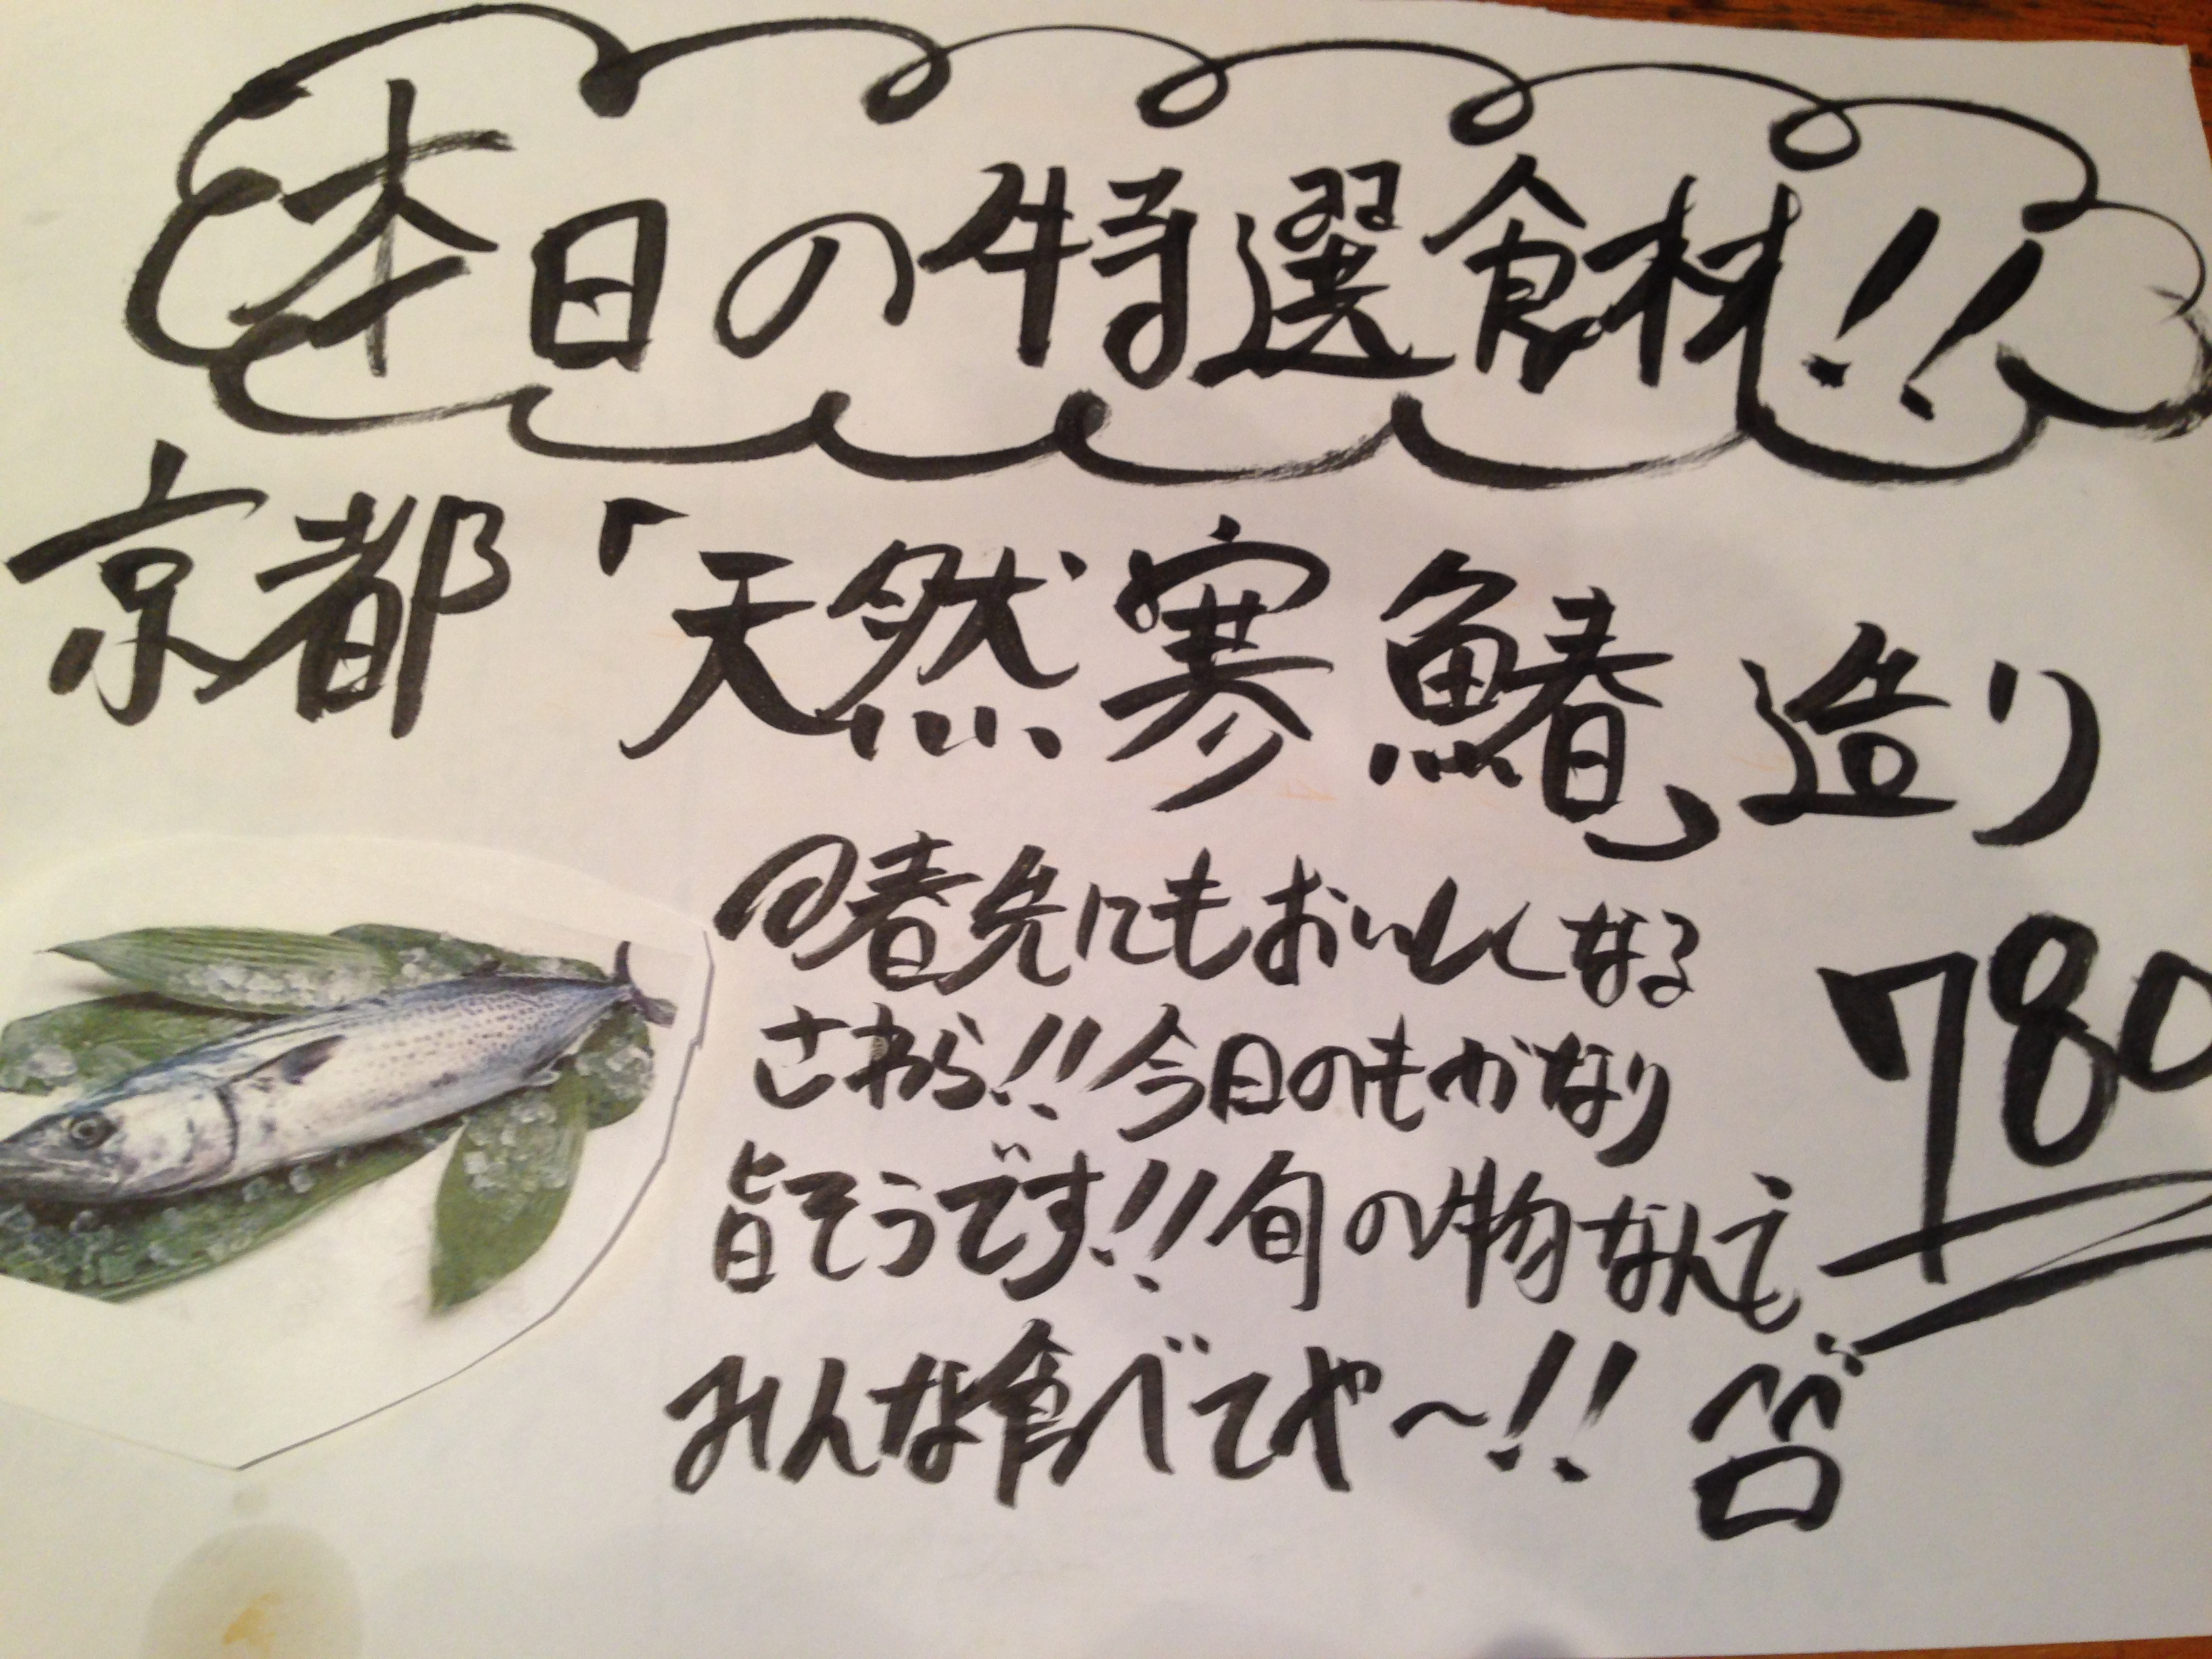 本日の特選食材!!
京都「天然寒鰆」造り
@春先にもおいしくなる
さわら!!今日のもかなり
旨そうです!!旬の物なんで、
みんな食べてや〜!!
780